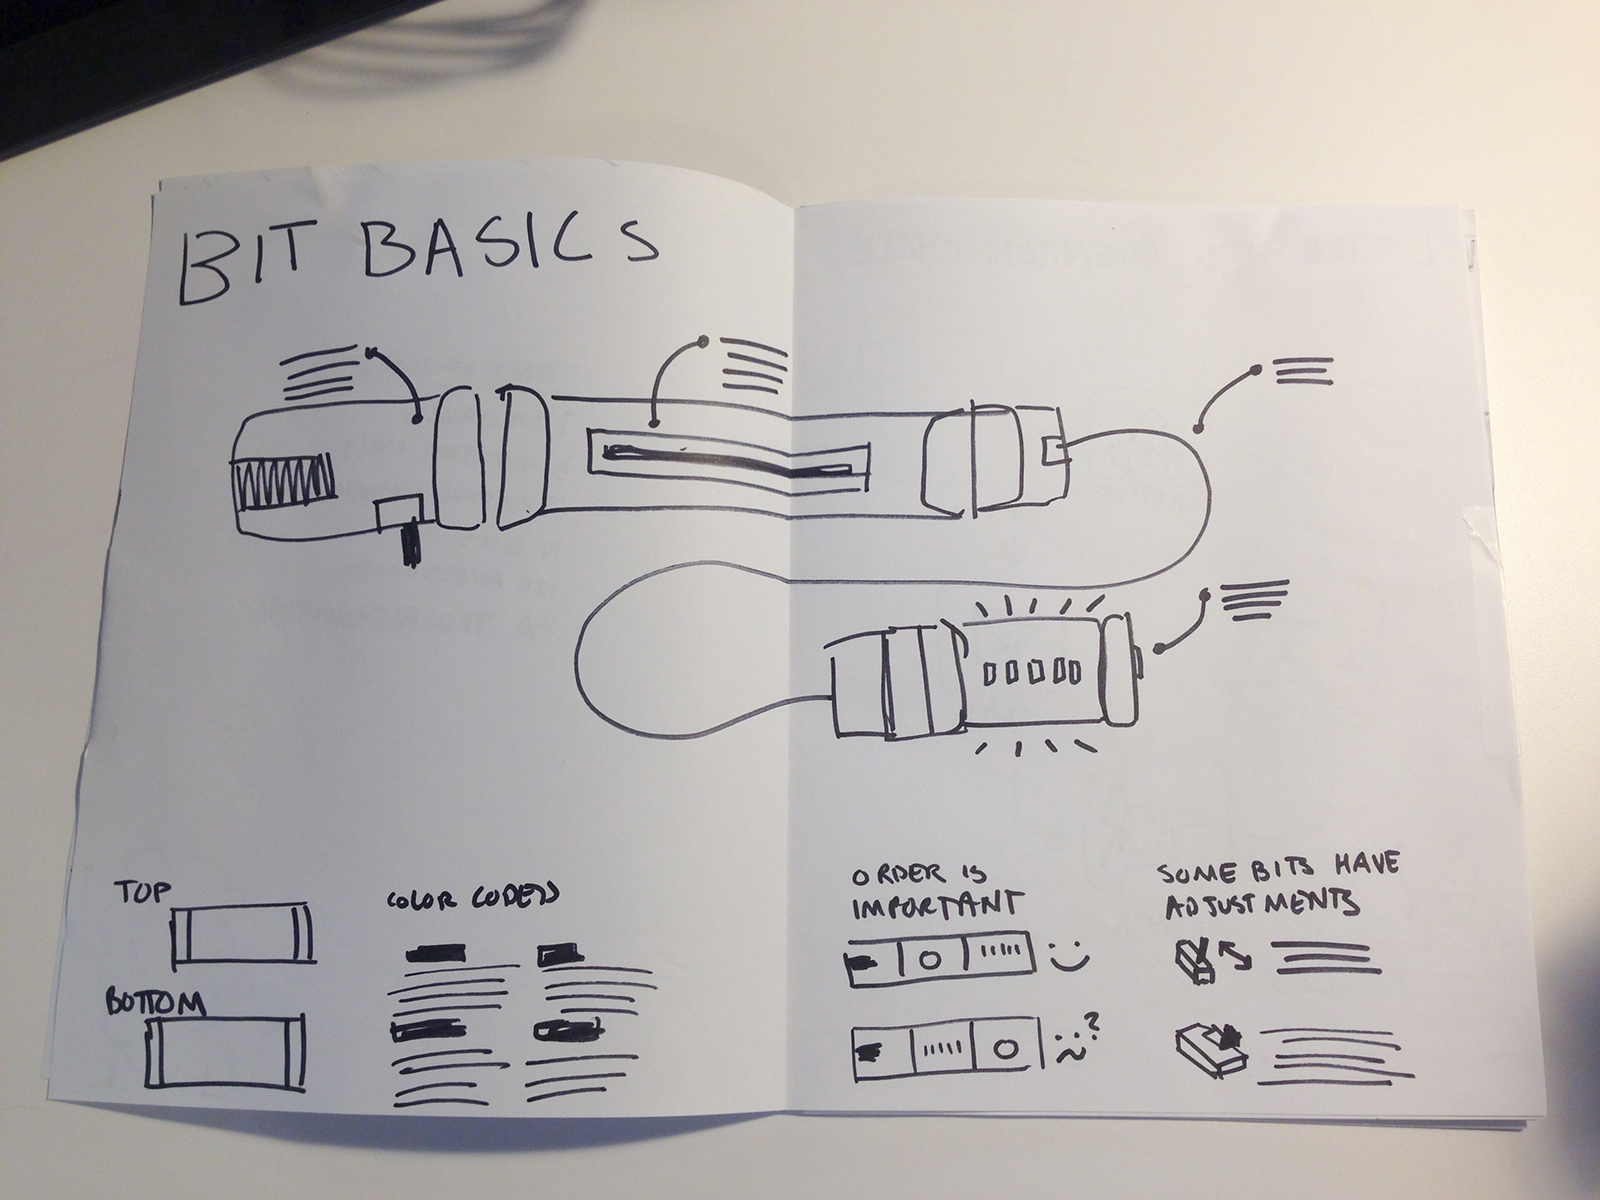 BIT BASICS
TOP
BOTTOM
COLOR CODED
ORDER IS
IMPORTANT
?
SOME BITS HAVE
ADJUSTMENTS